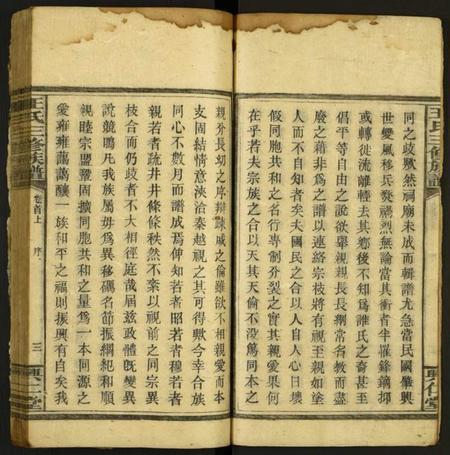 同之歧厭然祠廟未成而輯譜尤急當民國肇興
世變風移兵燹禍烈無論當其衝者半罹鋒鏑抑
或轉徙流離輕去其鄉後不知為誰氏之裔甚至
倡平等自由之說欲舉親親長長綱常名教而盡
廢之藉非為之譜以連絡宗枝將有視至親如塗
人而不自知者矣夫國民之合以人自人心日壞
假同胞共和之名行專制分裂之實其親愛果何
在乎若夫宗族之合以天其天倫不没為同本之
親分長幼之序辯疎戚之倫雖欲不相親愛而本
支固結情意浹洽秦越視之其可得歟今幸合族
同心不數月而譜成焉俾知若者昭若者穆若者
親若者疏井井條條秩然不紊以視前之同宗異
枝合而仍歧者不大相徑庭哉屆茲政體既變異
說競鳴凡我族屬毋為異移礪名節振綱紀和順
親睦宗盟鞏固擴同胞共和之量為一本同源之
愛雍雍藹藹釀一族和平之福則振興有自矣我
王氏三修族譜
卷首上
序
三
興仁堂